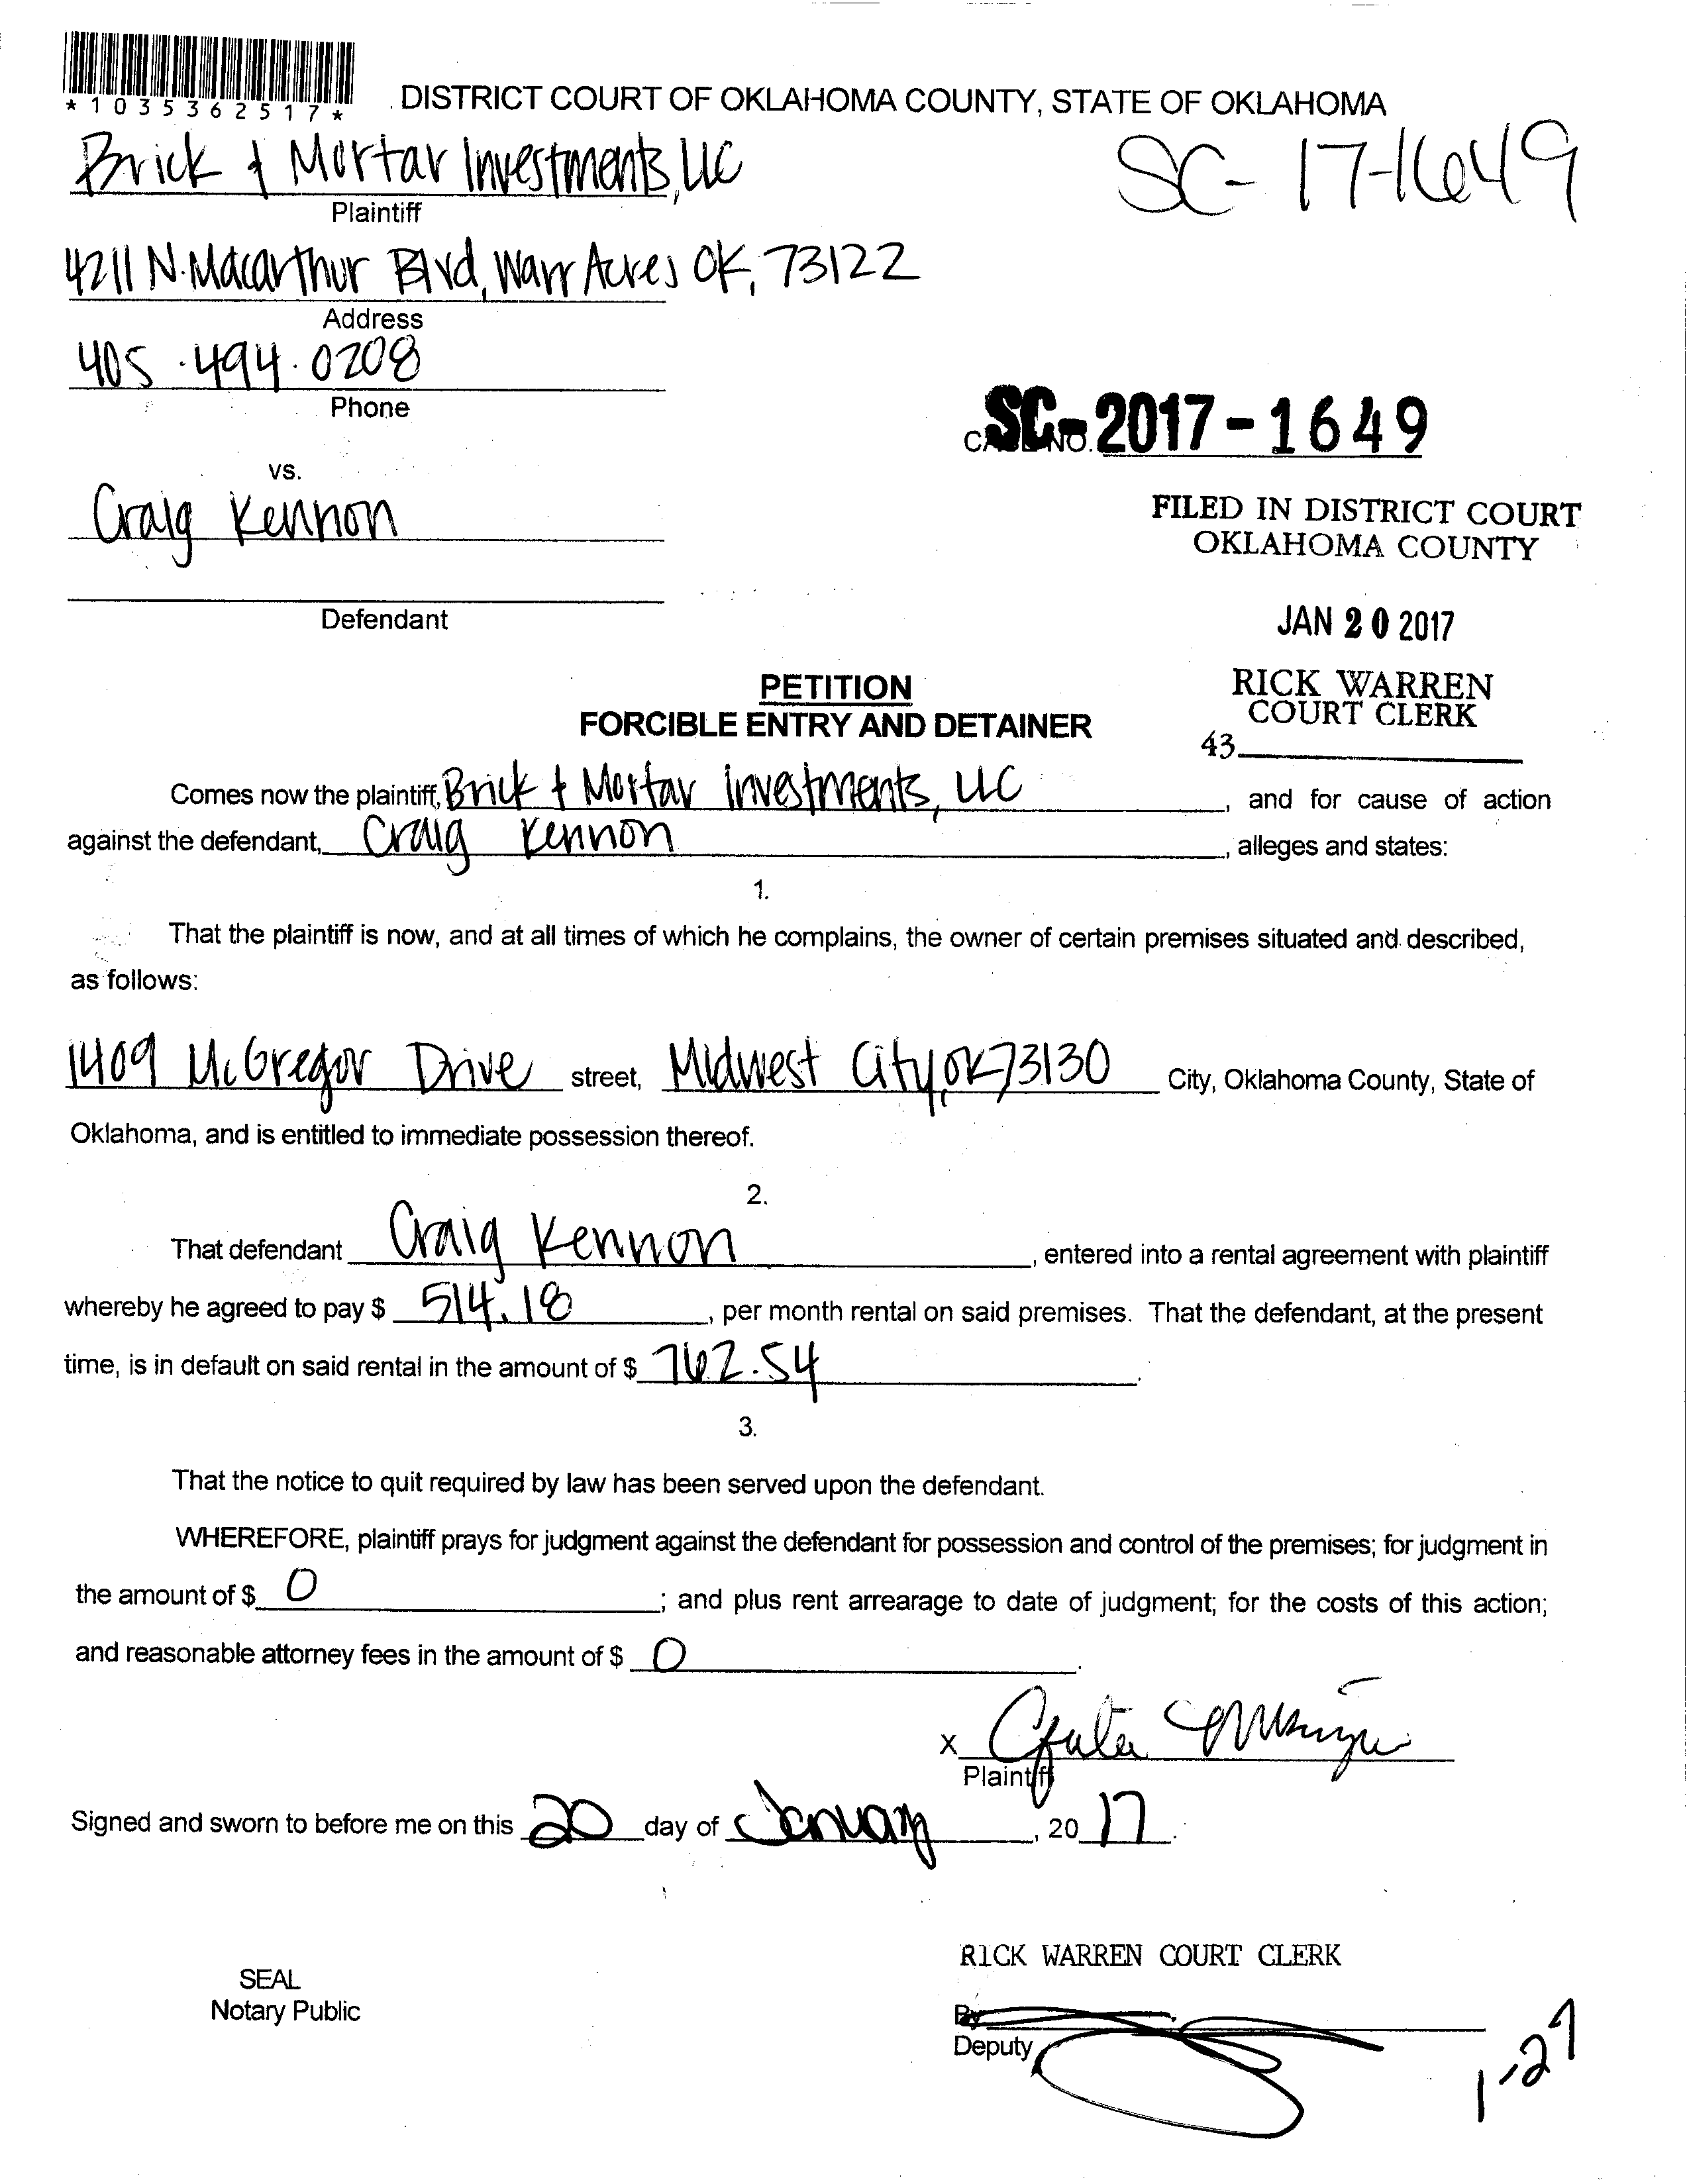 *1035362517*
DISTRICT COURT OF OKLAHOMA COUNTY, STATE OF OKLAHOMA
Brick & Mortar Investments, LLC
SC-17-1649
Plaintiff
4211 N. Macarthur Blvd, Warr Acres OK, 73122
Address
405.494.0208
Phone
SC-2017-1649
NO.
vs.
Craig Kennon
FILED IN DISTRICT COURT
OKLAHOMA COUNTY
Defendant
JAN 20 2017
PETITION
FORCIBLE ENTRY AND DETAINER
RICK WARREN
COURT CLERK
43
Comes now the plaintiff, Brick & Mortar Investments, LLC, and for cause of action
against the defendant, Craig Kennon, alleges and states:
1.
That the plaintiff is now, and at all times of which he complains, the owner of certain premises situated and described,
as follows:
1409 McGregor Drive street, Midwest City, OK 73130 City, Oklahoma County, State of
Oklahoma, and is entitled to immediate possession thereof.
2.
That defendant Craig Kennon, entered into a rental agreement with plaintiff
whereby he agreed to pay $ 514.18, per month rental on said premises. That the defendant, at the present
time, is in default on said rental in the amount of $ 762.54.
3.
That the notice to quit required by law has been served upon the defendant.
WHEREFORE, plaintiff prays for judgment against the defendant for possession and control of the premises; for judgment in
the amount of $ 0; and plus rent arrearage to date of judgment; for the costs of this action;
and reasonable attorney fees in the amount of $ 0.
X
Plaintiff
Signed and sworn to before me on this 20 day of January, 20 17.
RICK WARREN COURT CLERK
SEAL
Notary Public
By
Deputy
1-27